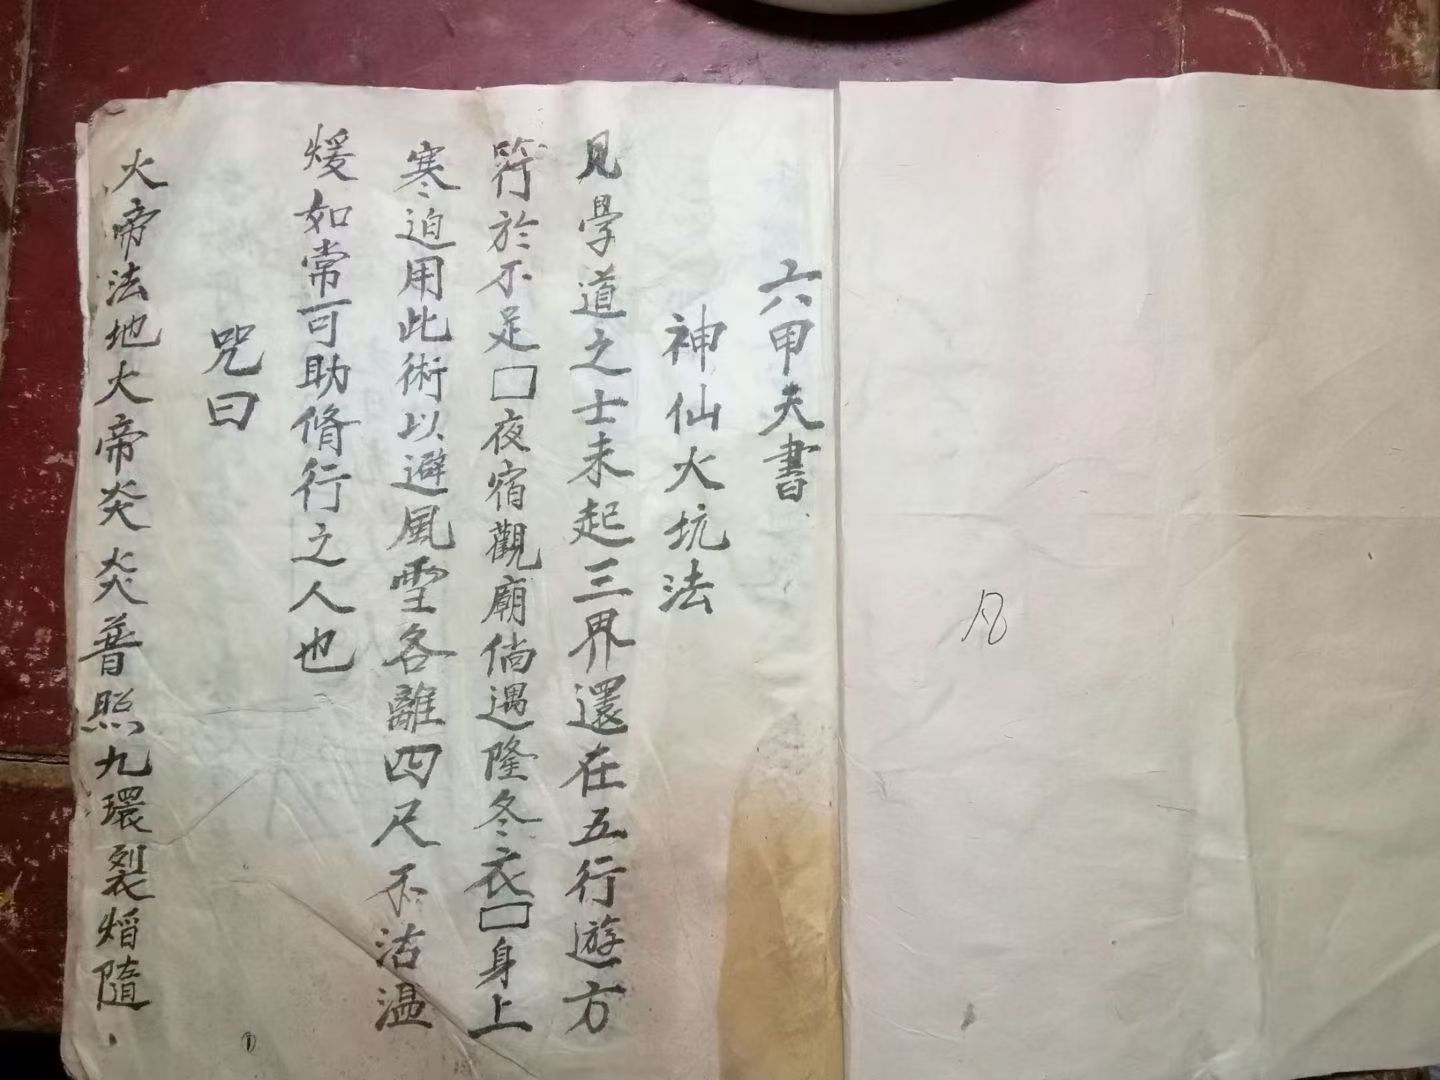 六甲天書
神仙火坑法
見學道之士未起三界還在五行遊方
符於不足□夜宿觀廟倘遇隆冬衣□身上
寒迫用此術以避風雪各離四尺不沾温
煖如常可助脩行之人也
咒曰
火帝法地大帝炎炎普照九環裂焰隨
①
凡